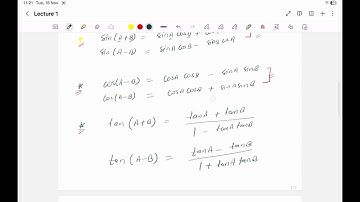 11:21 Tue, 18 Nov
Lecture 1
* sin(A+B) = sinA cosB +
sin(A-B) = sinA cosB -
* cos(A-B) = cosA cosB - sinA sinB
cos(A-B) = cosA cosB + sinA sinB
* tan(A+B) = tanA + tanB / 1 - tanA tanB
tan(A-B) = tanA - tanB / 1 + tanA tanB